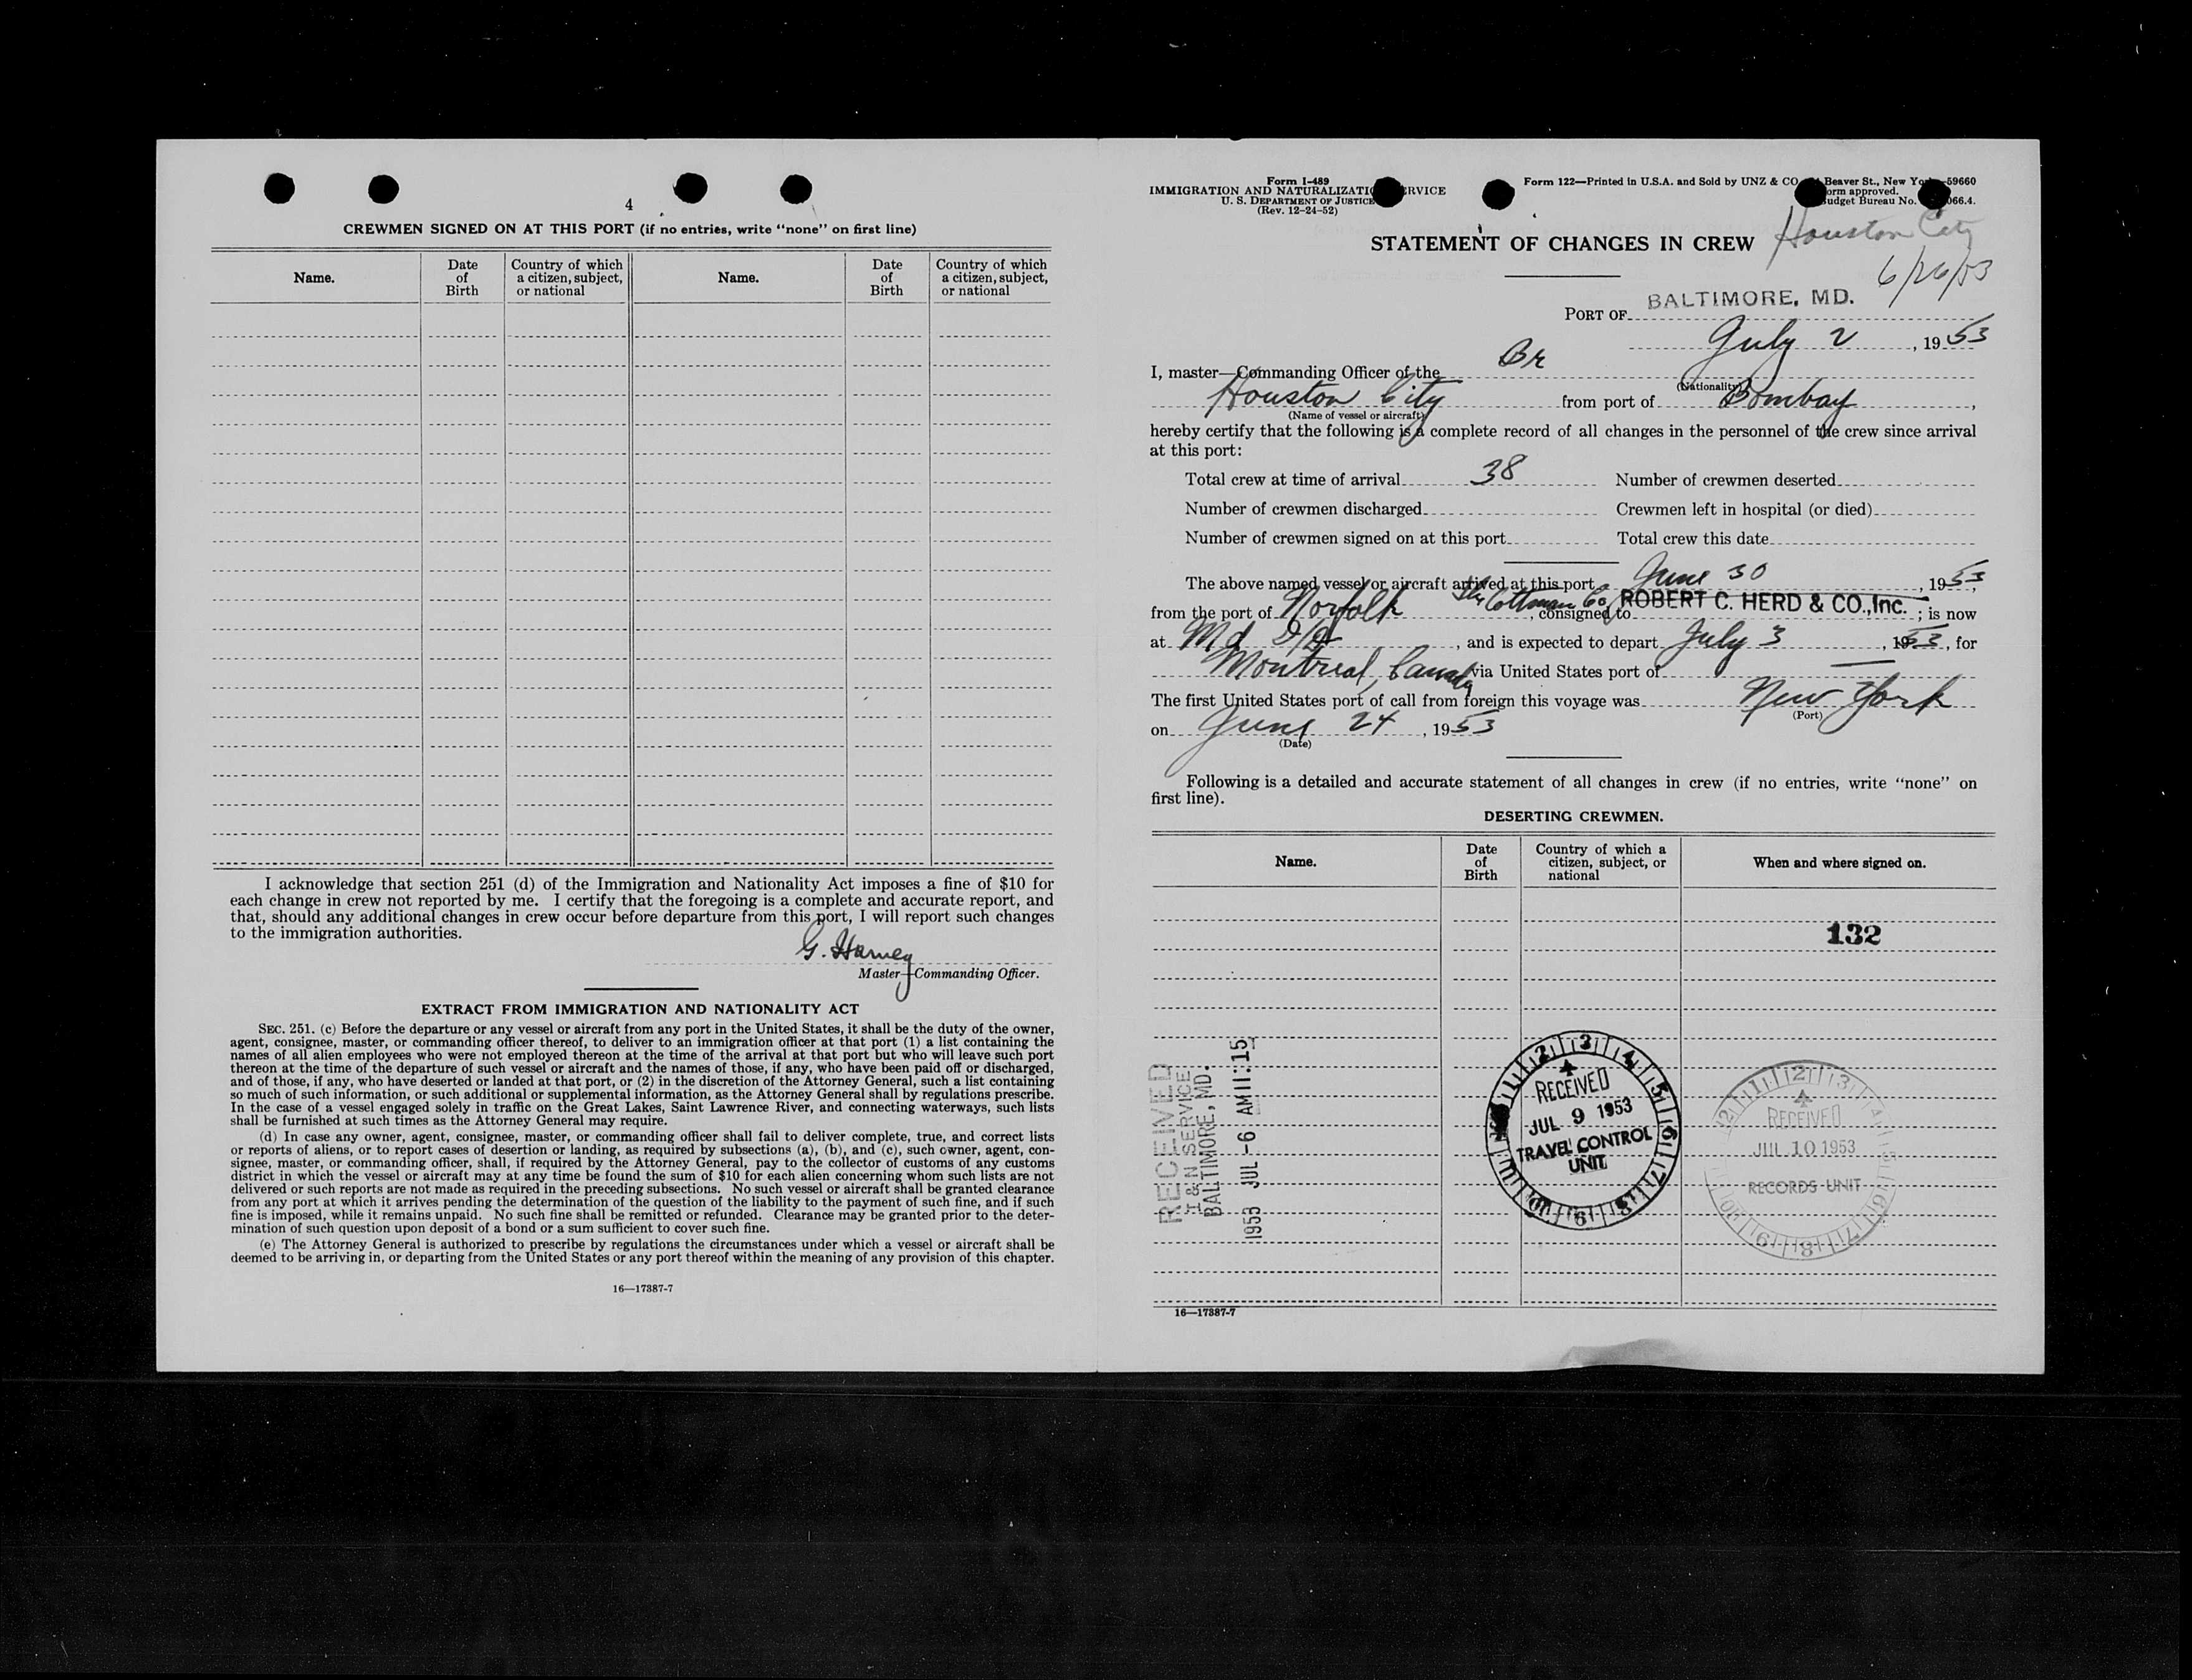 4
CREWMEN SIGNED ON AT THIS PORT (if no entries, write “none” on first line)
Name.
Date
of
Birth
Country of which
a citizen, subject,
or national
Name.
Date
of
Birth
Country of which
a citizen, subject,
or national
I acknowledge that section 251 (d) of the Immigration and Nationality Act imposes a fine of $10 for
each change in crew not reported by me. I certify that the foregoing is a complete and accurate report, and
that, should any additional changes in crew occur before departure from this port, I will report such changes
to the immigration authorities.
G. Harvey
Master—Commanding Officer.
EXTRACT FROM IMMIGRATION AND NATIONALITY ACT
SEC. 251. (c) Before the departure or any vessel or aircraft from any port in the United States, it shall be the duty of the owner,
agent, consignee, master, or commanding officer thereof, to deliver to an immigration officer at that port (1) a list containing the
names of all alien employees who were not employed thereon at the time of the arrival at that port but who will leave such port
thereon at the time of the departure of such vessel or aircraft and the names of those, if any, who have been paid off or discharged,
and of those, if any, who have deserted or landed at that port, or (2) in the discretion of the Attorney General, such a list containing
so much of such information, or such additional or supplemental information, as the Attorney General shall by regulations prescribe.
In the case of a vessel engaged solely in traffic on the Great Lakes, Saint Lawrence River, and connecting waterways, such lists
shall be furnished at such times as the Attorney General may require.
(d) In case any owner, agent, consignee, master, or commanding officer shall fail to deliver complete, true, and correct lists
or reports of aliens, or to report cases of desertion or landing, as required by subsections (a), (b), and (c), such owner, agent, con-
signee, master, or commanding officer, shall, if required by the Attorney General, pay to the collector of customs of any customs
district in which the vessel or aircraft may at any time be found the sum of $10 for each alien concerning whom such lists are not
delivered or such reports are not made as required in the preceding subsections. No such vessel or aircraft shall be granted clearance
from any port at which it arrives pending the determination of the question of the liability to the payment of such fine, and if such
fine is imposed, while it remains unpaid. No such fine shall be remitted or refunded. Clearance may be granted prior to the deter-
mination of such question upon deposit of a bond or a sum sufficient to cover such fine.
(e) The Attorney General is authorized to prescribe by regulations the circumstances under which a vessel or aircraft shall be
deemed to be arriving in, or departing from the United States or any port thereof within the meaning of any provision of this chapter.
16—17387-7
Form I-489
IMMIGRATION AND NATURALIZATI RVICE
U. S. DEPARTMENT OF JUSTICE
(Rev. 12-24-52)
Form 122—Printed in U.S.A. and Sold by UNZ & CO Beaver St., New Yo 59660
orm approved.
udget Bureau No. 066.4.
STATEMENT OF CHANGES IN CREW Houston City
6/26/53
PORT OF BALTIMORE, MD.
July 2, 1953
I, master—Commanding Officer of the Br
(Nationality)
Houston City from port of Bombay,
(Name of vessel or aircraft)
hereby certify that the following is a complete record of all changes in the personnel of the crew since arrival
at this port:
Total crew at time of arrival 38 Number of crewmen deserted
Number of crewmen discharged Crewmen left in hospital (or died)
Number of crewmen signed on at this port Total crew this date
The above named vessel or aircraft arrived at this port June 30, 1953,
from the port of Norfolk, consigned to The Cottman Co. ROBERT C. HERD & CO., Inc.; is now
at Md D/D, and is expected to depart July 3, 1953, for
Montreal, Canada via United States port of —
The first United States port of call from foreign this voyage was New York
(Port)
on June 24, 1953
(Date)
Following is a detailed and accurate statement of all changes in crew (if no entries, write “none” on
first line).
DESERTING CREWMEN.
Name.
Date
of
Birth
Country of which a
citizen, subject, or
national
When and where signed on.
132
RECEIVED
I & N SERVICE
BALTIMORE, MD.
1953 JUL -6 AM 11:15
RECEIVED
JUL 9 1953
TRAVEL CONTROL
UNIT
RECEIVED
JUL 10 1953
RECORDS UNIT
16—17387-7